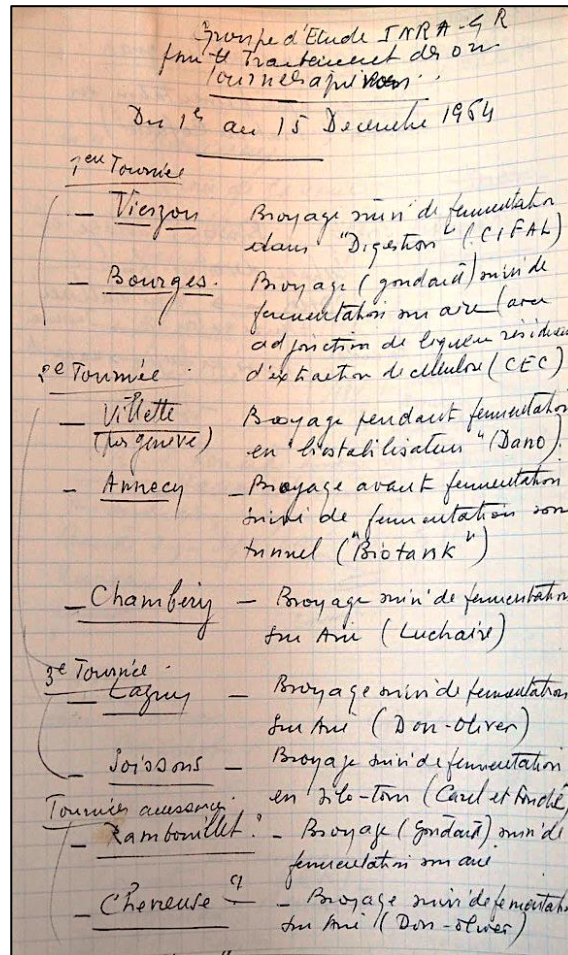 Groupe d'Etude INRA-GR
Traitement des om
Tournées
Du 1er au 15 Decembre 1964
1ere Tournée
– Vierzon Broyage suivi de fermentation
dans "Digestion" (CIFAL)
– Bourges. Broyage (gondard) suivi de
fermentation sur aire (avec
adjonction de liqueur résiduaire
d'extraction de cellulose (CEC)
2e Tournée.
– Villette Broyage pendant fermentation
(prs genève) en "biostabilisateur" (Dano).
– Annecy – Broyage avant fermentation
suivi de fermentation sous
tunnel ("Biotank")
– Chambéry – Broyage suivi de fermentation
sur Aire (Luchaire)
3e Tournée.
– Lagny – Broyage suivi de fermentation
sur Aire (Don-Oliver)
– Soissons – Broyage suivi de fermentation
Tournées accessoires en silo-tour (Carel et Fouché)
– Rambouillet : – Broyage (gondard) suivi de
fermentation sur aire
– Chevreuse – Broyage suivi de fermentation
sur Aire (Don-oliver)